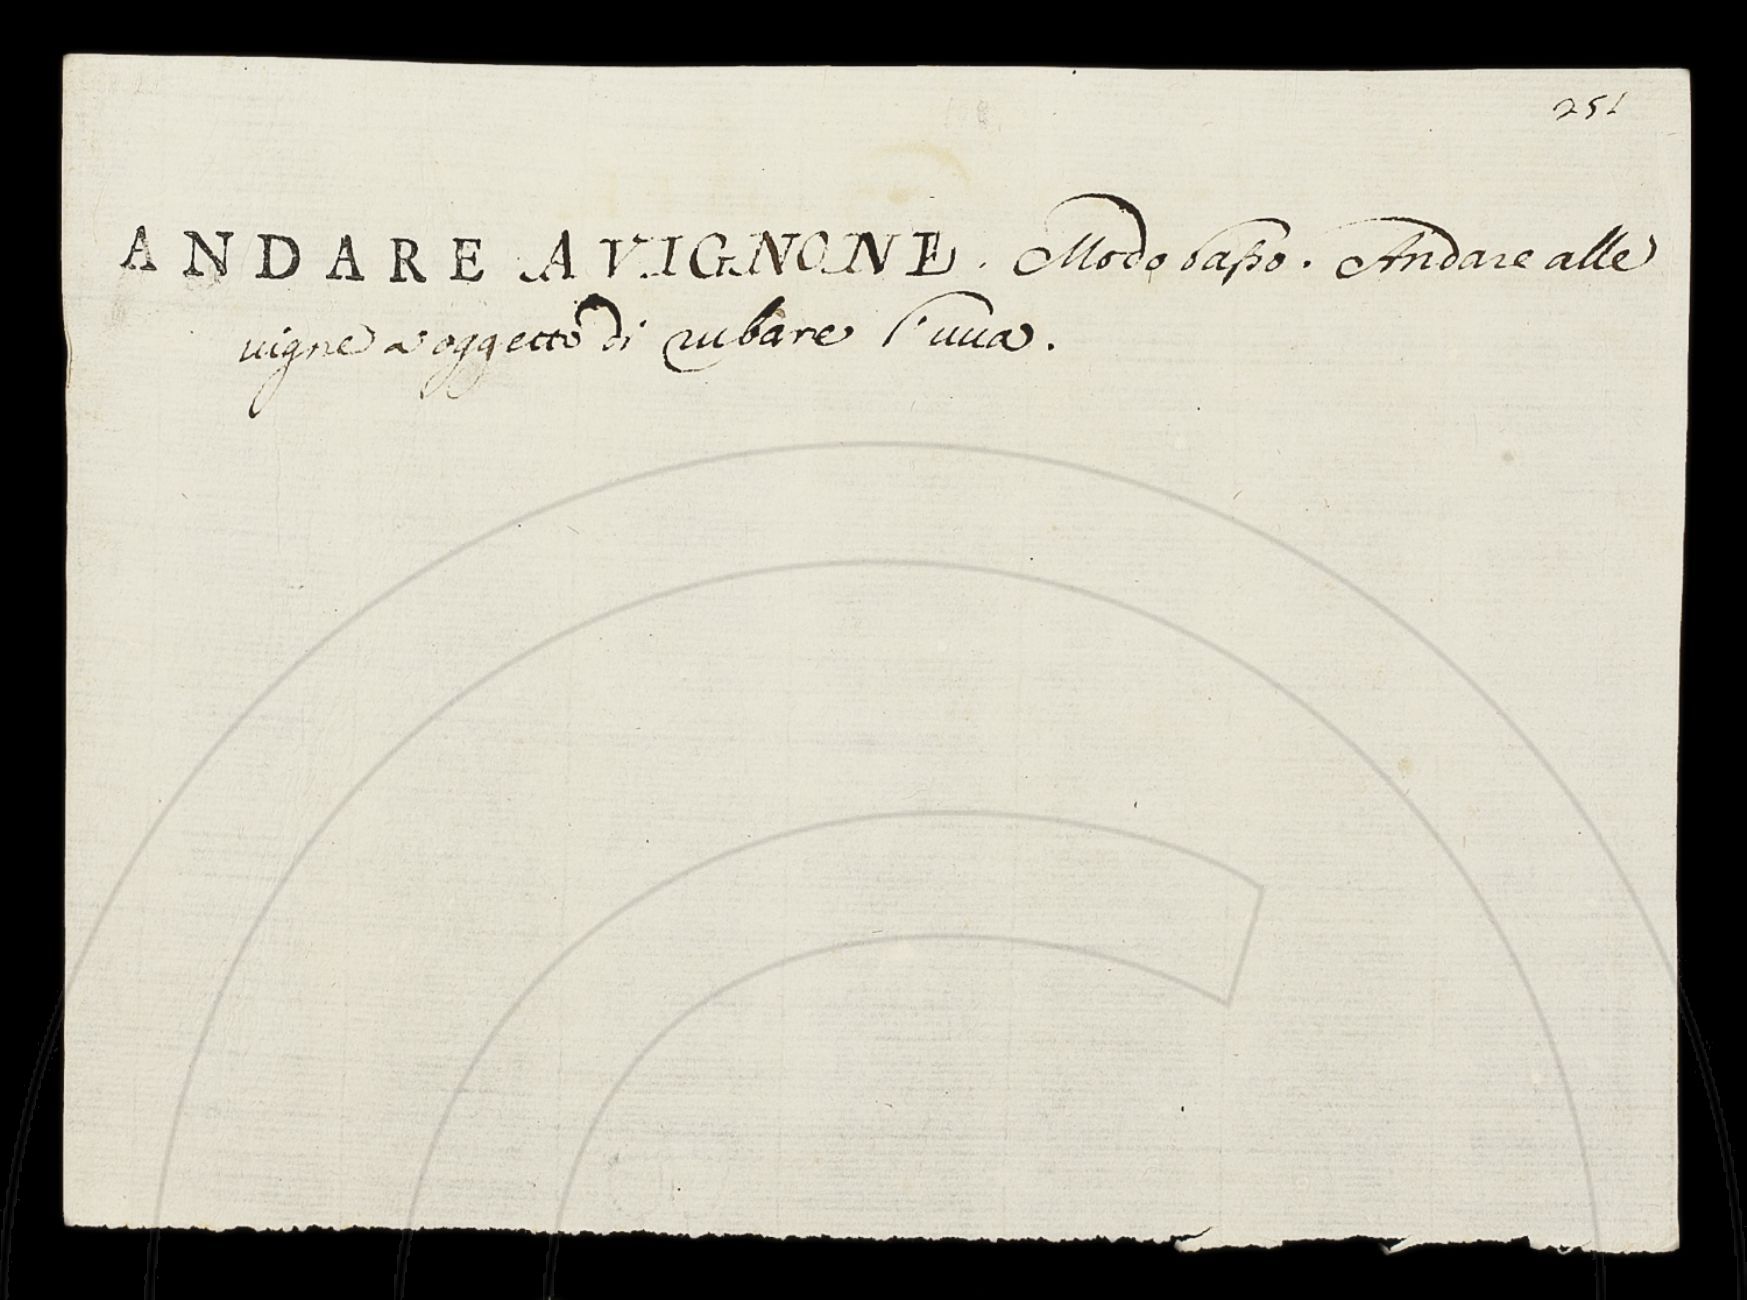 251
ANDARE AVIGNONE. Modo basso. Andare alle
uigne a oggetto di rubare l'uua.